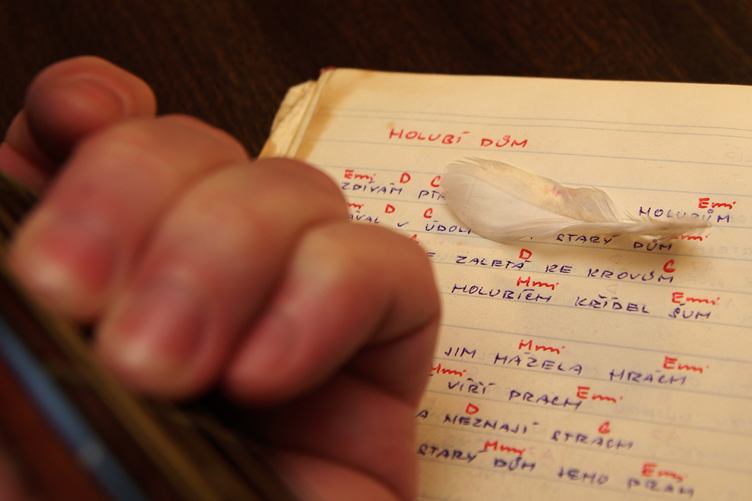 HOLUBÍ DŮM
Emi D C Emi
ZDÍVÁM HOLUBŮM
D C Emi
V ÚDOLÍ STARÝ DŮM
D C
ZALETÁ KE KROVŮM
Hmi Emi
HOLUBÍCH KŘÍDEL ŠUM
Hmi Emi
JIM HÁZELA HRÁCH
Hmi Emi
VÍŘÍ PRACH
D C
A NEZNAJÍ STRACH
Hmi Emi
STARÝ DŮM JEHO PRAH